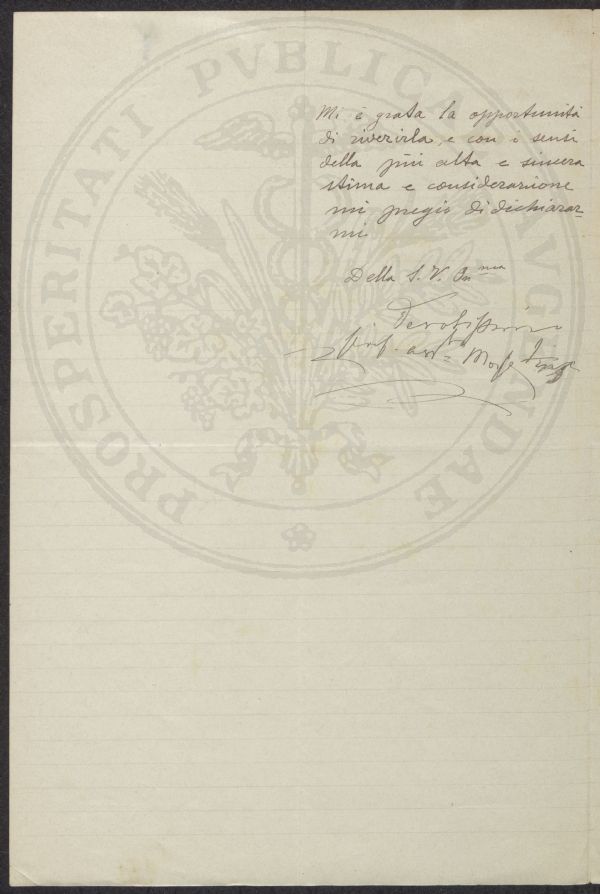 PROSPERITATI PVBLICAE AVGENDAE
Mi è grata la opportunità
di riverirla, e con i sensi
della più alta e sincera
stima e considerazione
mi pregio di dichiarar=
mi
Della S. V. On.ma
Devotissimo
Prof. Mosè